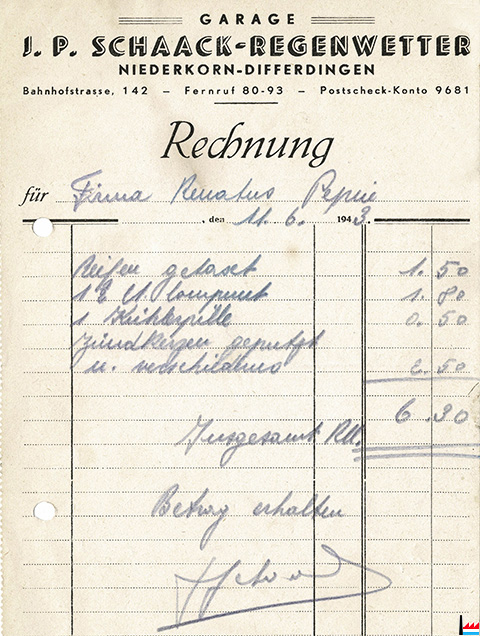 GARAGE
J. P. SCHAACK-REGENWETTER
NIEDERKORN-DIFFERDINGEN
Bahnhofstrasse, 142 – Fernruf 80-93 – Postscheck-Konto 9681
Rechnung
für Firma Renatus Pepin
, den 11. 6. 1943.
Reifen 1.50
1 1.80
1 0.50
Zündkerzen geputzt
u. 2.50
6.30
Insgesamt RM.
Betrag erhalten